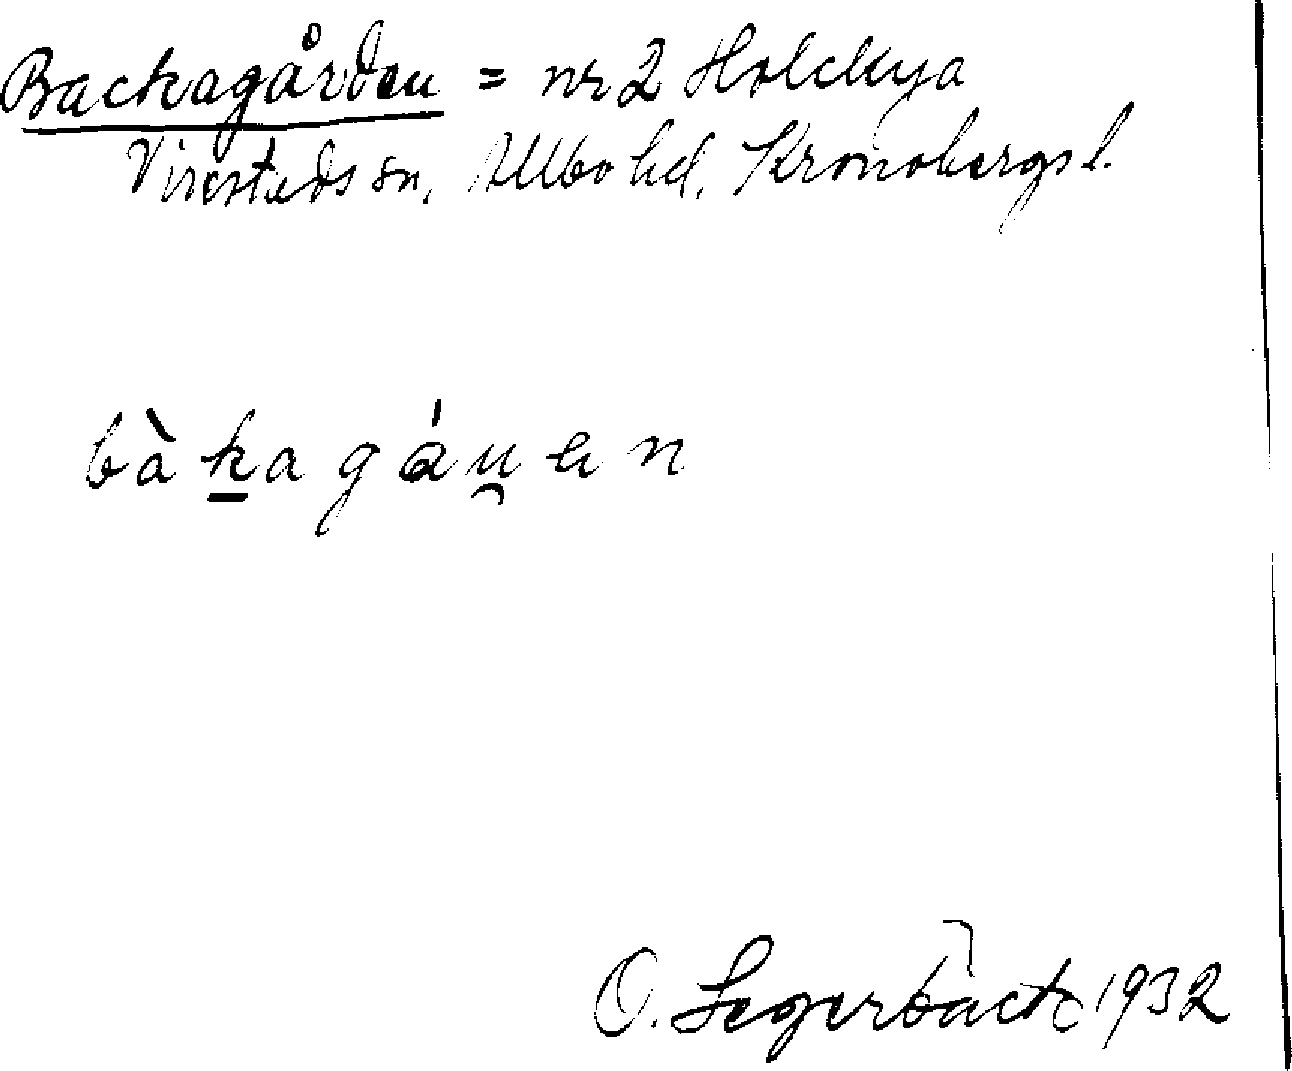 Backagården = nr 2 Holckya
Virestads sn, Allbo hd, Kronobergs l.
bàkagáu̯en
O. Segerbäck 1932